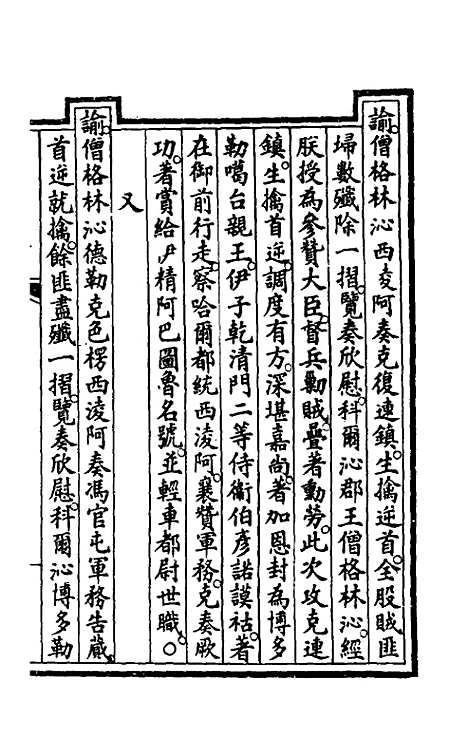 諭僧格林沁西凌阿奏克復連鎮生擒逆首全股賊匪
埽數殲除一摺覽奏欣慰科爾沁郡王僧格林沁經
朕授為參贊大臣督兵勦賊疊著勳勞此次攻克連
鎮生擒首逆調度有方深堪嘉尚著加恩封為博多
勒噶台親王伊子乾清門二等侍衛伯彥諾謨祜著
在御前行走察哈爾都統西凌阿襄贊軍務克奏厥
功著賞給伊精阿巴圖魯名號並輕車都尉世職○
又
諭僧格林沁德勒克色楞西淩阿奏馮官屯軍務告蕆
首逆就擒餘匪盡殲一摺覽奏欣慰科爾沁博多勒